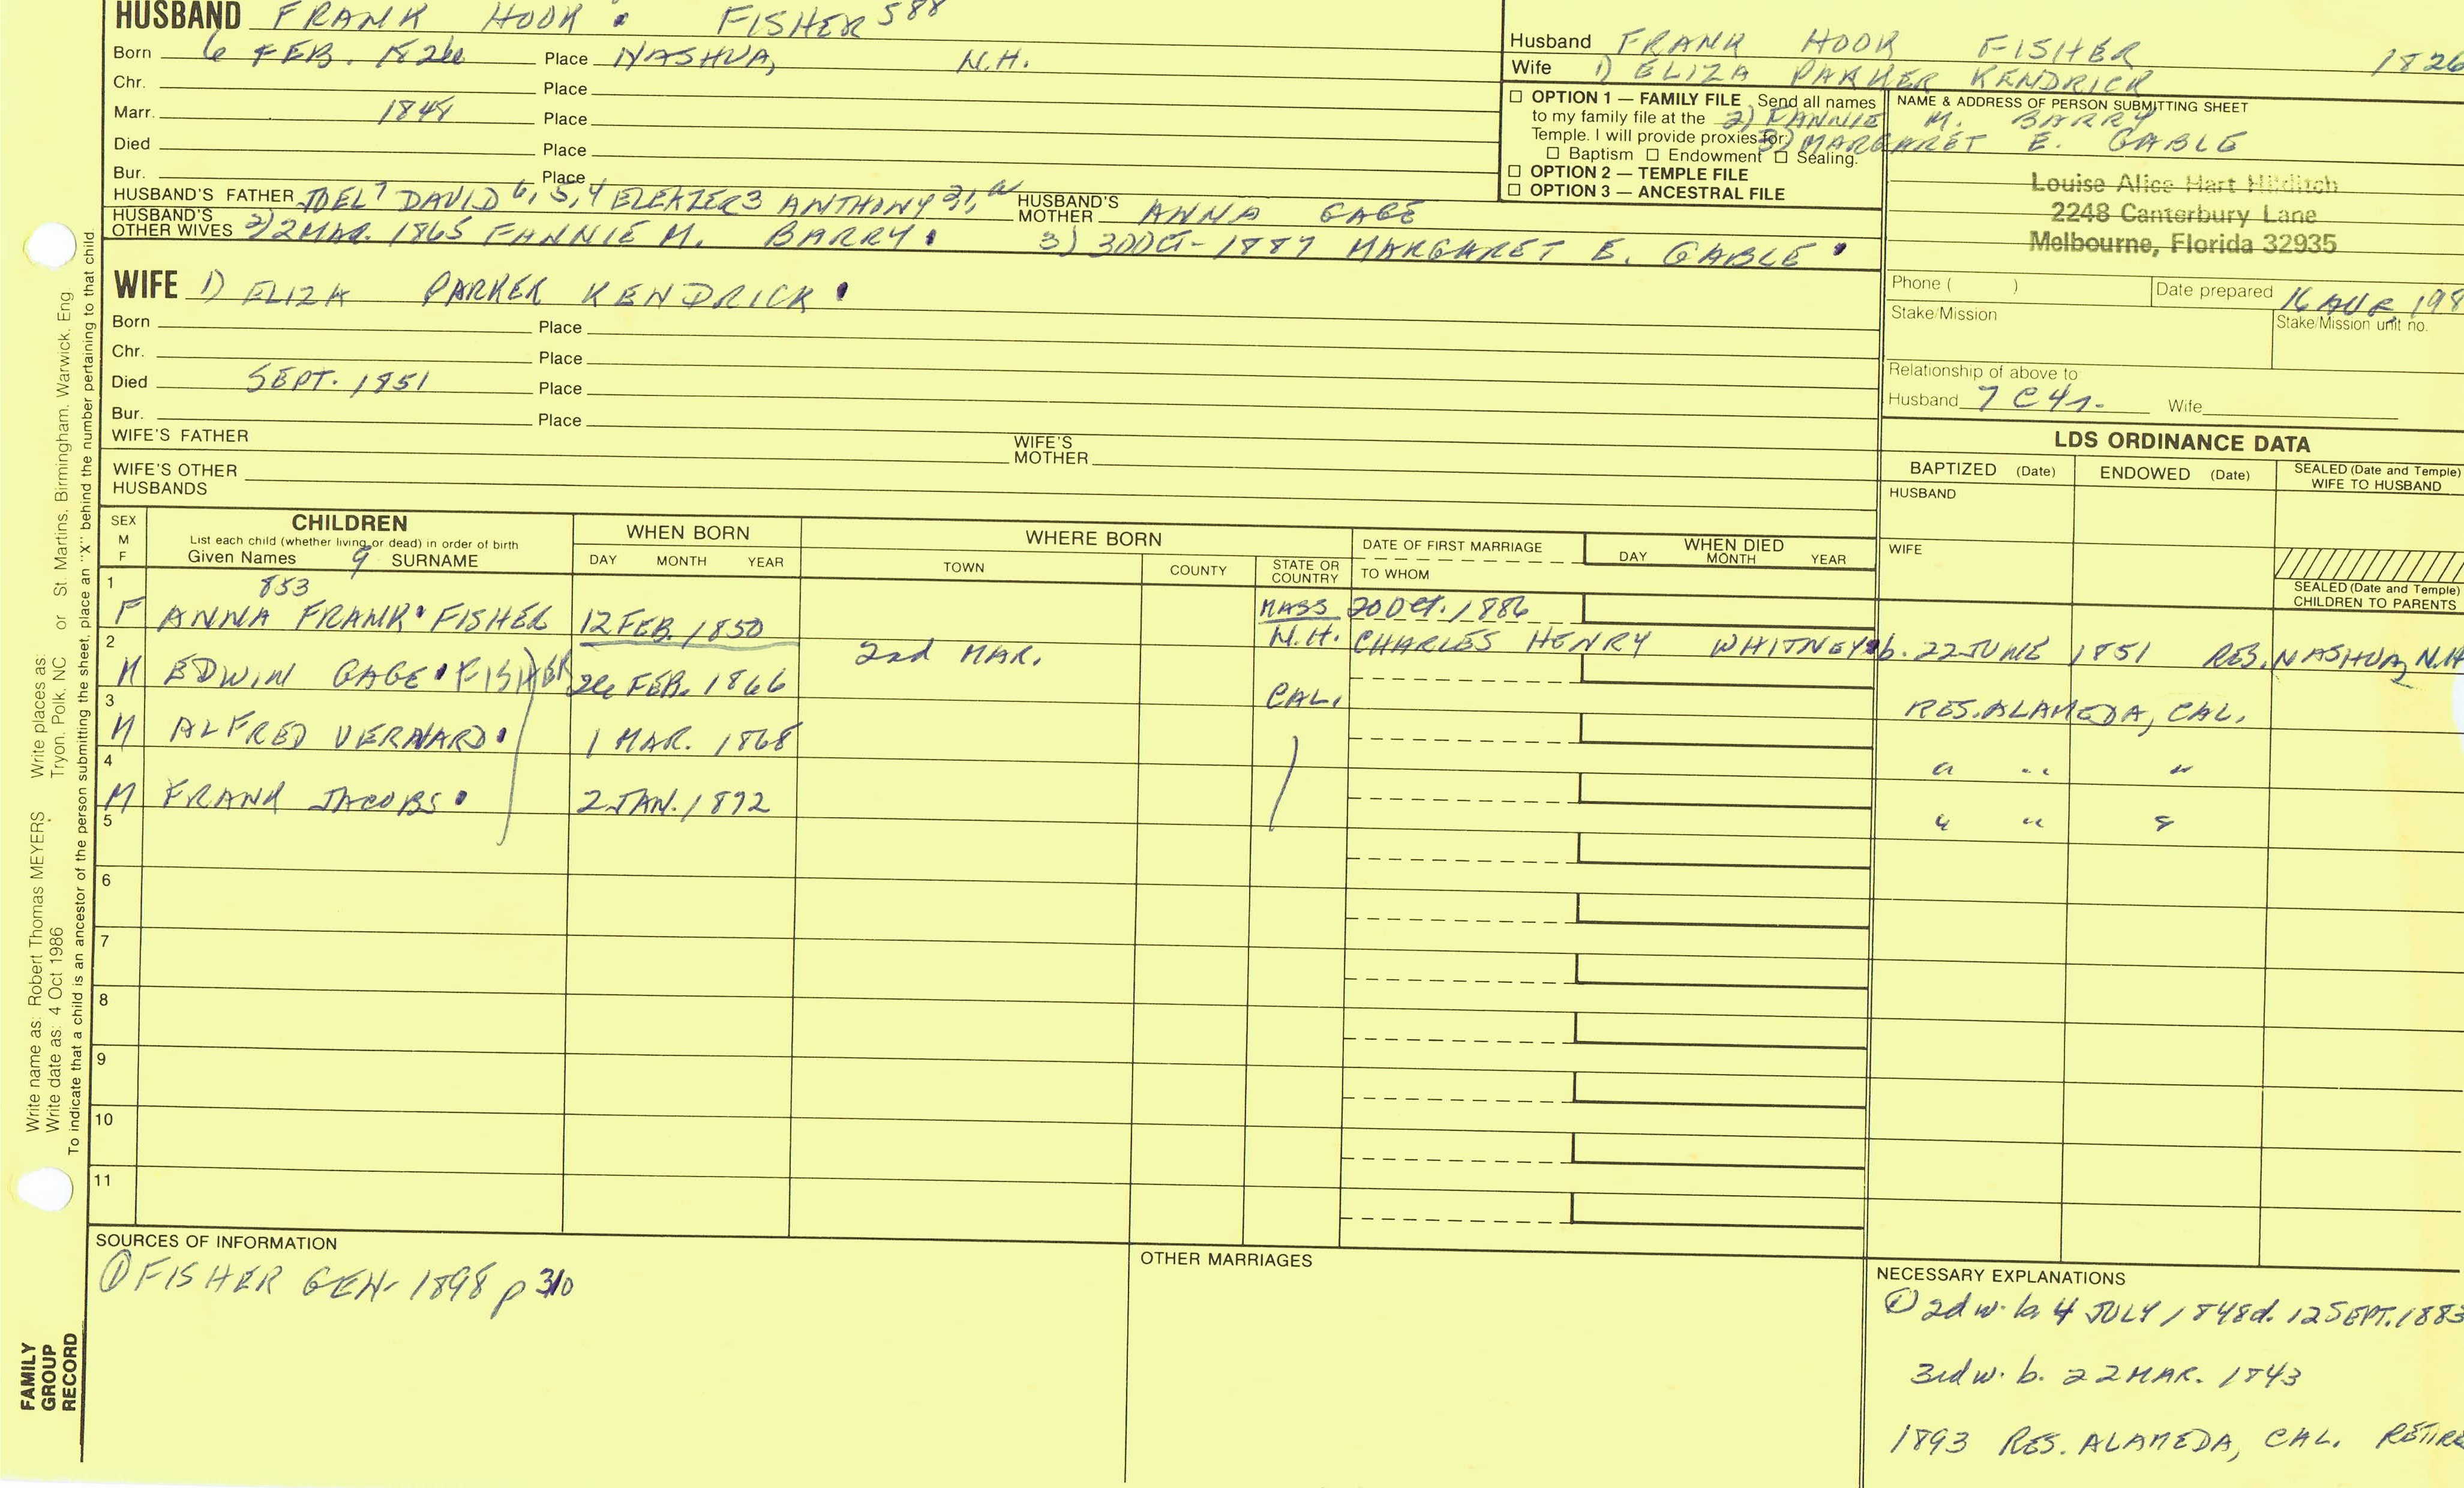 HUSBAND FRANK HOOK FISHER 588
Born 6 FEB. 1826 Place NASHUA, N.H.
Chr. Place
Marr. 1848 Place
Died Place
Bur. Place
HUSBAND'S FATHER JOEL7 DAVID 6, 5, 4 ELEAZER3 ANTHONY HUSBAND'S MOTHER ANNA GAGE
HUSBAND'S OTHER WIVES 2) 2 MAR. 1865 FANNIE M. BARRY 3) 3 OCT- 1887 MARGARET E. GABLE
WIFE 1) ELIZA PARKER KENDRICK
Born Place
Chr. Place
Died SEPT. 1851 Place
Bur. Place
WIFE'S FATHER WIFE'S MOTHER
WIFE'S OTHER HUSBANDS
Husband FRANK HOOK FISHER 1826
Wife 1) ELIZA PARKER KENDRICK
2) FANNIE M. BARRY
3) MARGARET E. GABLE
☐ OPTION 1 — FAMILY FILE Send all names
to my family file at the
Temple. I will provide proxies for
☐ Baptism ☐ Endowment ☐ Sealing.
☐ OPTION 2 — TEMPLE FILE
☐ OPTION 3 — ANCESTRAL FILE
NAME & ADDRESS OF PERSON SUBMITTING SHEET
Louise Alice Hart Hilditch
2248 Canterbury Lane
Melbourne, Florida 32935
Phone ( ) Date prepared 16 AUG. 198
Stake/Mission Stake/Mission unit no.
Relationship of above to
Husband 7C4r. Wife
LDS ORDINANCE DATA
BAPTIZED (Date) ENDOWED (Date) SEALED (Date and Temple) WIFE TO HUSBAND
HUSBAND
WIFE
SEALED (Date and Temple) CHILDREN TO PARENTS
SEX M F
CHILDREN
List each child (whether living or dead) in order of birth
Given Names 9 SURNAME
WHEN BORN
DAY MONTH YEAR
WHERE BORN
TOWN COUNTY STATE OR COUNTRY
DATE OF FIRST MARRIAGE
TO WHOM
WHEN DIED
DAY MONTH YEAR
1 853
F ANNA FRANK FISHER 12 FEB. 1850 MASS 20 OCT. 1886
N.H. CHARLES HENRY WHITNEY b. 22 JUNE 1851 RES. NASHUA, N.H
2
M EDWIN GAGE FISHER 26 FEB. 1866 2nd MAR. CAL. RES. ALAMEDA, CAL.
3
M ALFRED VERNARD 1 MAR. 1868 " " "
4
M FRANK JACOBS 2 JAN. 1872 " " "
5
6
7
8
9
10
11
SOURCES OF INFORMATION
① FISHER GEN- 1898 p 310
OTHER MARRIAGES
NECESSARY EXPLANATIONS
① 2d w. b. 4 JULY 1848 d. 12 SEPT. 1883
3rd w. b. 22 MAR. 1843
1893 RES. ALAMEDA, CAL. RETIRE
Write name as: Robert Thomas MEYERS Write places as: St. Martins, Birmingham, Warwick, Eng
Write date as: 4 Oct 1986 Tryon, Polk, NC or
To indicate that a child is an ancestor of the person submitting the sheet, place an "X" behind the number pertaining to that child.
FAMILY GROUP RECORD